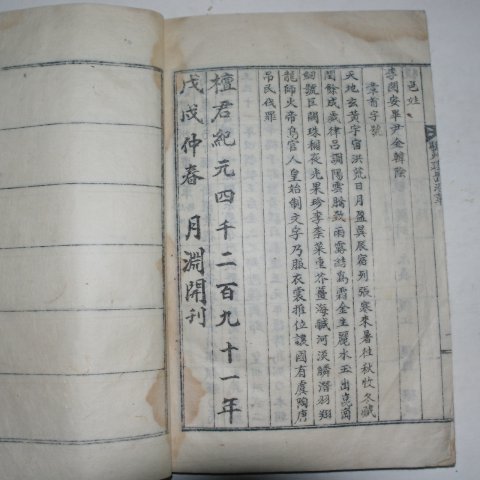 邑姓
李閔安畢尹金韓除
韋首字號
天地玄黃字宙洪荒日月盈昃辰宿列張寒來暑往秋收冬藏
閏餘成歲律呂調陽雲騰致雨露結爲霜金生麗水玉出崑崗
劍號巨闕珠稱夜光果珍李柰菜重芥薑海醎河淡鱗潛羽翔
龍師火帝鳥官人皇始制文字乃服衣裳推位讓國有虞陶唐
吊民伐罪
檀君紀元四千二百九十一年
戊戌仲春 月淵開刊